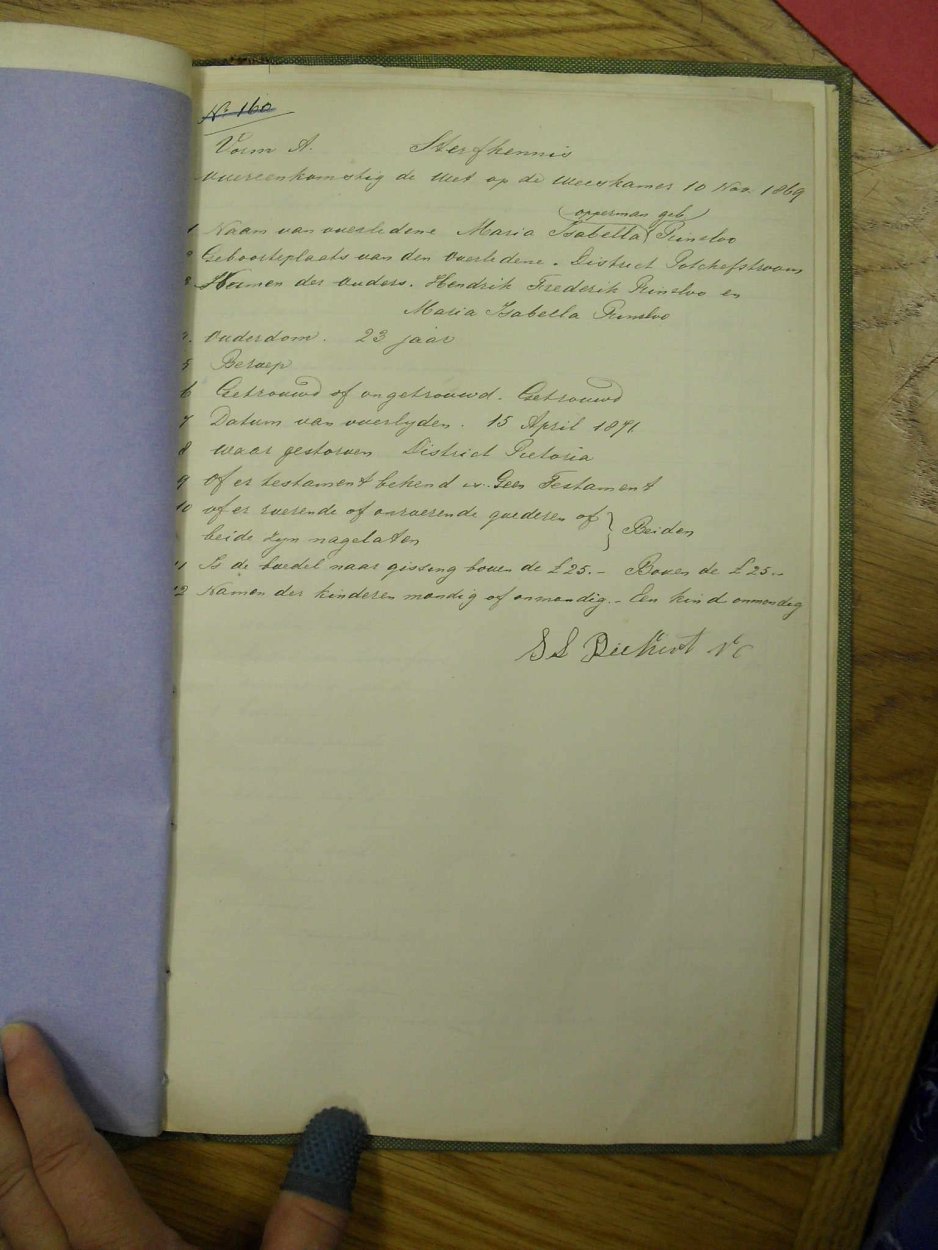 No 160
Vorm A. Sterfkennis
overeenkomstig de Wet op de Weeskamer 10 Nov. 1869
opperman geb
1 Naam van overledene Maria Isabella Prinsloo
2 Geboorteplaats van den Overledene. District Potchefstroom
3 Namen der Ouders. Hendrik Frederik Prinsloo en
Maria Isabella Prinsloo
4. Ouderdom. 23 jaar
5 Beroep
6 Getrouwd of ongetrouwd. Getrouwd
7 Datum van overlyden. 15 April 1871
8 waar gestorven District Pretoria
9 Of er testament bekend is. Geen Testament
10 of er roerende of onroerende goederen of
beide zyn nagelaten } Beiden
11 Is de boedel naar gissing boven de £25.- Boven de £25.-
12 Namen der kinderen mondig of onmondig.. Een kind onmondig
S S